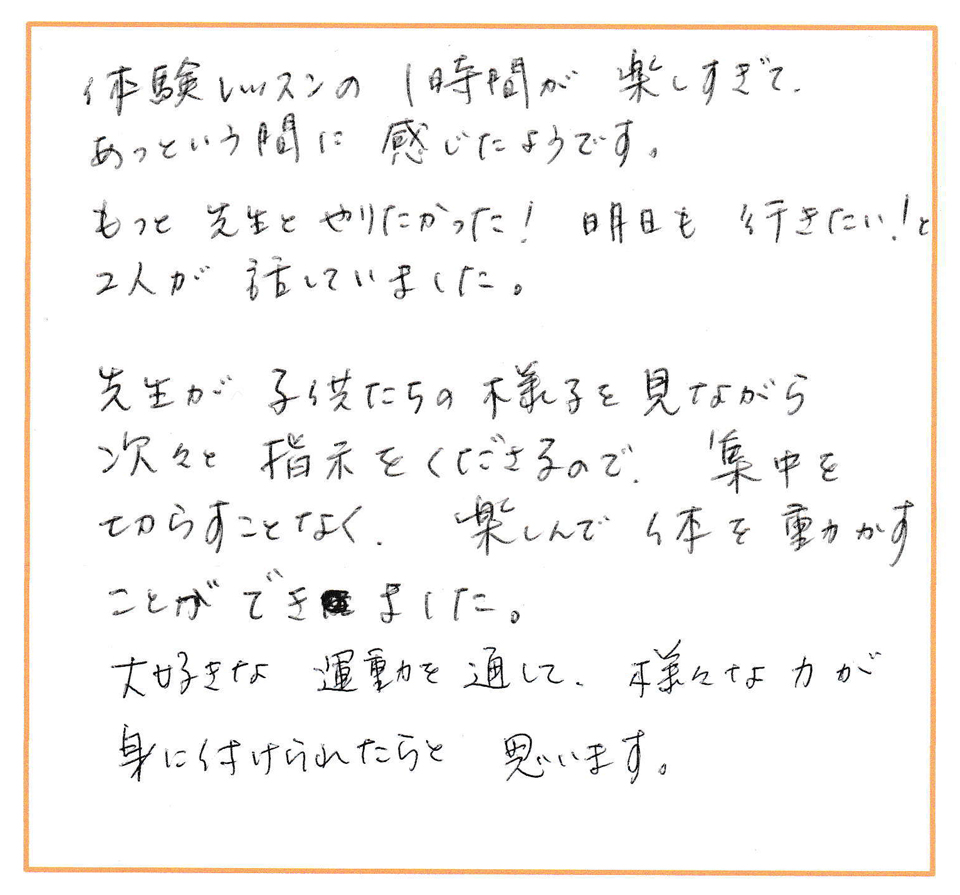 体験レッスンの 1時間が 楽しすぎて、
あっという間に 感じたようです。
もっと 先生と やりたかった! 明日も 行きたい!と
2人が 話していました。
先生が 子供たちの 様子を 見ながら
次々と 指示を くださるので、 集中を
切らすことなく、 楽しんで 体を 動かす
ことが できました。
大好きな 運動を 通して、 様々な力が
身に付けられたらと 思います。